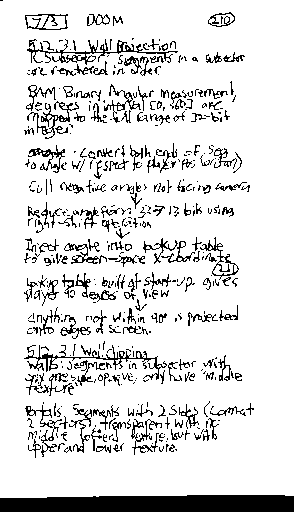 7/3 DOOM 210
5.12.3.1 Wall Projection
Subsector: segments in a subsector
are rendered in order
BAM: Binary Angular Measurement,
degrees in interval [0, 360] are
mapped to the full range of 32-bit
integer.
Convert both ends of seg
to angle w/ respect to player pos
Cull negative angles not facing camera
Reduce angle from 32 → 13 bits using
right-shift operation
Inject angle into lookup table
to give screen-space X-coordinate
211
Lookup table: built at start-up gives
player 90 degrees of view
Anything not within 90° is projected
onto edges of screen.
5.12.3.1 Wall clipping
Walls: Segments in subsector with
only one side, opaque, only have "middle
texture"
Portals: Segments with 2 sides (connect
2 sectors), transparent with no
middle texture, but with
upper and lower texture.